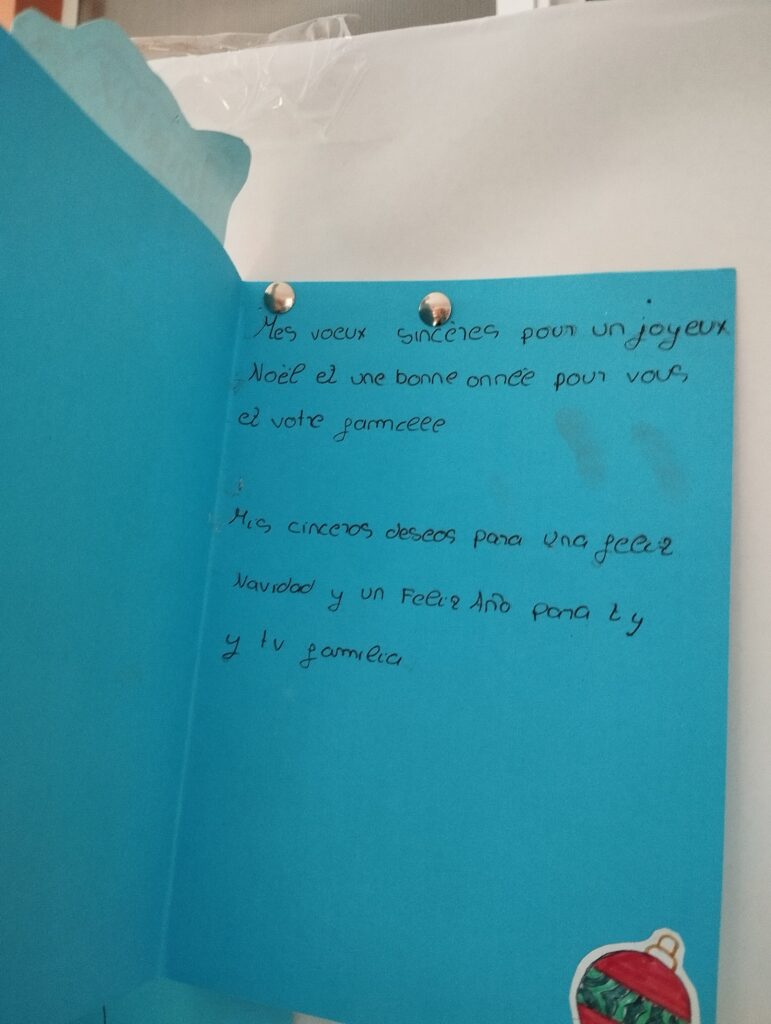 Mes voeux sincères pour un joyeux
Noël et une bonne onnée pour vous
et votre famceee
Mis cinceros deseos para una feliz
Navidad y un Feliz Año para ty
y tu familia